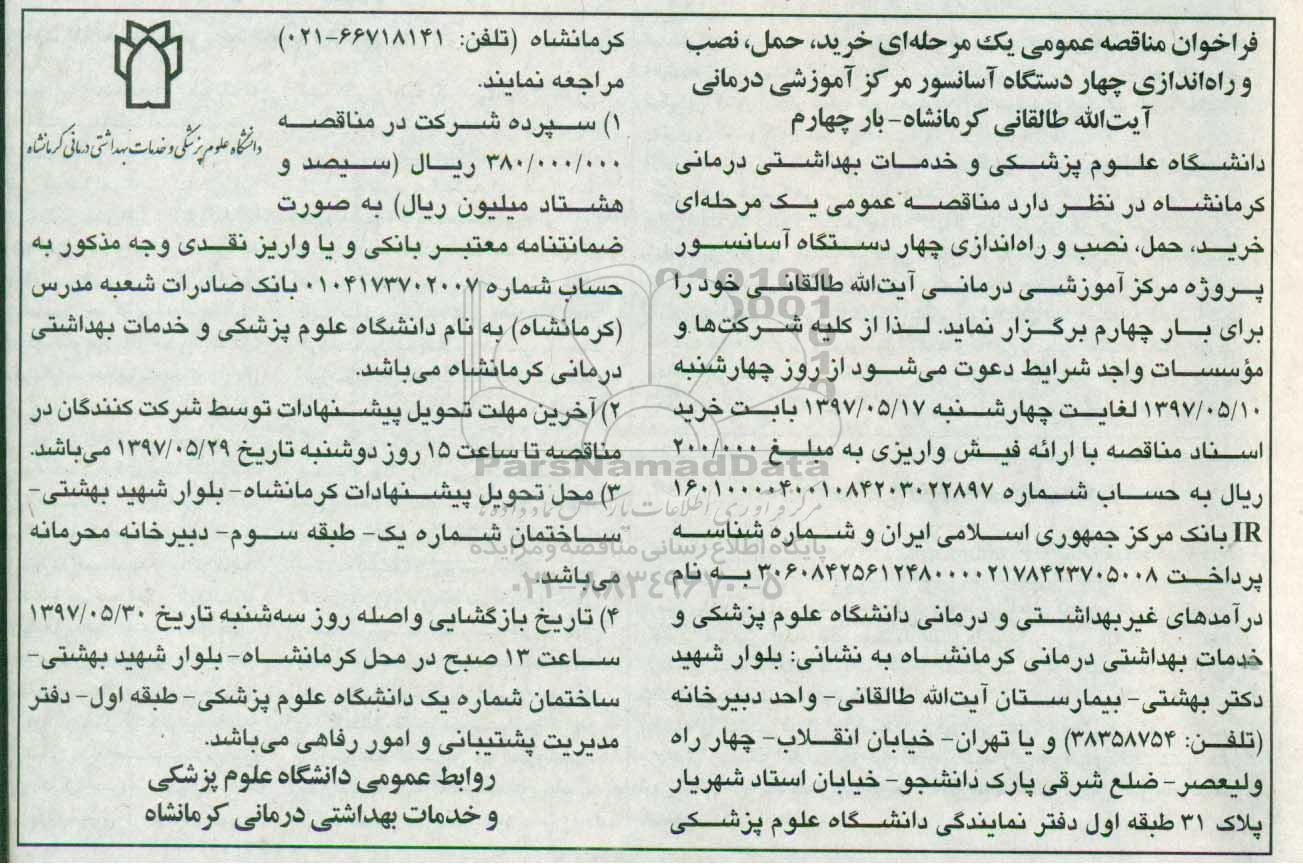 فراخوان مناقصه عمومی یک مرحله‌ای خرید، حمل، نصب
و راه‌اندازی چهار دستگاه آسانسور مرکز آموزشی درمانی
آیت‌الله طالقانی کرمانشاه- بار چهارم
دانشگاه علوم پزشکی و خدمات بهداشتی درمانی
کرمانشاه در نظر دارد مناقصه عمومی یک مرحله‌ای
خرید، حمل، نصب و راه‌اندازی چهار دستگاه آسانسور
پروژه مرکز آموزشی درمانی آیت‌الله طالقانی خود را
برای بار چهارم برگزار نماید. لذا از کلیه شرکت‌ها و
مؤسسات واجد شرایط دعوت می‌شود از روز چهارشنبه
۱۳۹۷/۰۵/۱۰ لغایت چهارشنبه ۱۳۹۷/۰۵/۱۷ بابت خرید
اسناد مناقصه با ارائه فیش واریزی به مبلغ ۲۰۰/۰۰۰
ریال به حساب شماره ۱۶۰۱۰۰۰۰۴۰۰۱۰۸۴۲۰۳۰۲۲۸۹۷
IR بانک مرکز جمهوری اسلامی ایران و شماره شناسه
پرداخت ۳۰۶۰۸۴۲۵۶۱۲۴۸۰۰۰۰۲۱۷۸۴۲۳۷۰۵۰۰۸ به نام
درآمدهای غیربهداشتی و درمانی دانشگاه علوم پزشکی و
خدمات بهداشتی درمانی کرمانشاه به نشانی: بلوار شهید
دکتر بهشتی- بیمارستان آیت‌الله طالقانی- واحد دبیرخانه
(تلفن: ۳۸۳۵۸۷۵۴) و یا تهران- خیابان انقلاب- چهار راه
ولیعصر- ضلع شرقی پارک دانشجو- خیابان استاد شهریار
پلاک ۳۱ طبقه اول دفتر نمایندگی دانشگاه علوم پزشکی
کرمانشاه (تلفن: ۶۶۷۱۸۱۴۱-۰۲۱)
مراجعه نمایند.
۱) سپرده شرکت در مناقصه
۳۸۰/۰۰۰/۰۰۰ ریال (سیصد و
هشتاد میلیون ریال) به صورت
ضمانتنامه معتبر بانکی و یا واریز نقدی وجه مذکور به
حساب شماره ۰۱۰۴۱۷۳۷۰۲۰۰۷ بانک صادرات شعبه مدرس
(کرمانشاه) به نام دانشگاه علوم پزشکی و خدمات بهداشتی
درمانی کرمانشاه می‌باشد.
۲) آخرین مهلت تحویل پیشنهادات توسط شرکت کنندگان در
مناقصه تا ساعت ۱۵ روز دوشنبه تاریخ ۱۳۹۷/۰۵/۲۹ می‌باشد.
۳) محل تحویل پیشنهادات کرمانشاه- بلوار شهید بهشتی-
ساختمان شماره یک- طبقه سوم- دبیرخانه محرمانه
می‌باشد.
۴) تاریخ بازگشایی واصله روز سه‌شنبه تاریخ ۱۳۹۷/۰۵/۳۰
ساعت ۱۳ صبح در محل کرمانشاه- بلوار شهید بهشتی-
ساختمان شماره یک دانشگاه علوم پزشکی- طبقه اول- دفتر
مدیریت پشتیبانی و امور رفاهی می‌باشد.
روابط عمومی دانشگاه علوم پزشکی
و خدمات بهداشتی درمانی کرمانشاه
دانشگاه علوم پزشکی و خدمات بهداشتی درمانی کرمانشاه
ParsNamadData
مرکز فرآوری اطلاعات پارس نماد داده‌ها
پایگاه اطلاع رسانی مناقصه و مزایده
۰۲۱-۸۸۳۴۹۶۷۰-۵